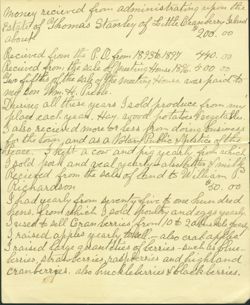 Money recieved from administrating upon the
estate of Thomas Stanley of Little Cranberry Island
about 200.00
Recieved from the P.O. from 1893 to 1897 440.00
Recieved from the sale of Meeting House 1896. 300.00
Two fifths of the sale of the Meeting House was paid to
my son Wm. H.
During all these years I sold produce from my
place each year. Hay, a good potatoes & vegetables.
I also recieved more or less from doing business
for the town, and as a Notary Public & Justice of the
Peace. I kept a cow and pig yearly from which
I sold pork and veal yearly also butter & milk
Recieved from the sales of land to William P.
Richardson 50.00
I had yearly from seventy five to one hundred
hens, from which I sold poultry and eggs yearly
I used to sell Cranberries from 10 to 20 bushels
I raised apples yearly to sell, also crab apples
I raised large quantities of berries such as blue
berries, strawberries, raspberries and highland
cranberries. also huckleberries & blackberries.